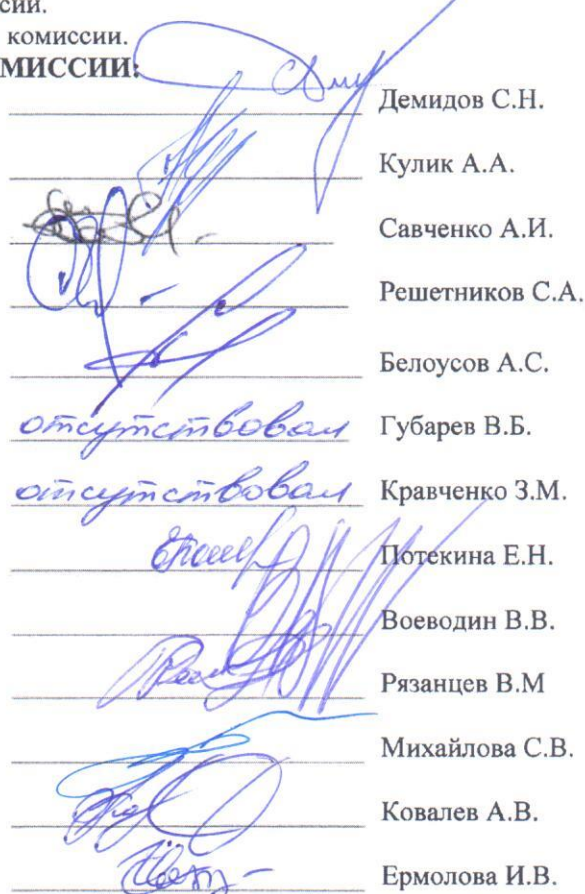 сии.
комиссии.
МИССИИ:
Демидов С.Н.
Кулик А.А.
Савченко А.И.
Решетников С.А.
Белоусов А.С.
отсутствовал Губарев В.Б.
отсутствовал Кравченко З.М.
Потекина Е.Н.
Воеводин В.В.
Рязанцев В.М
Михайлова С.В.
Ковалев А.В.
Ермолова И.В.